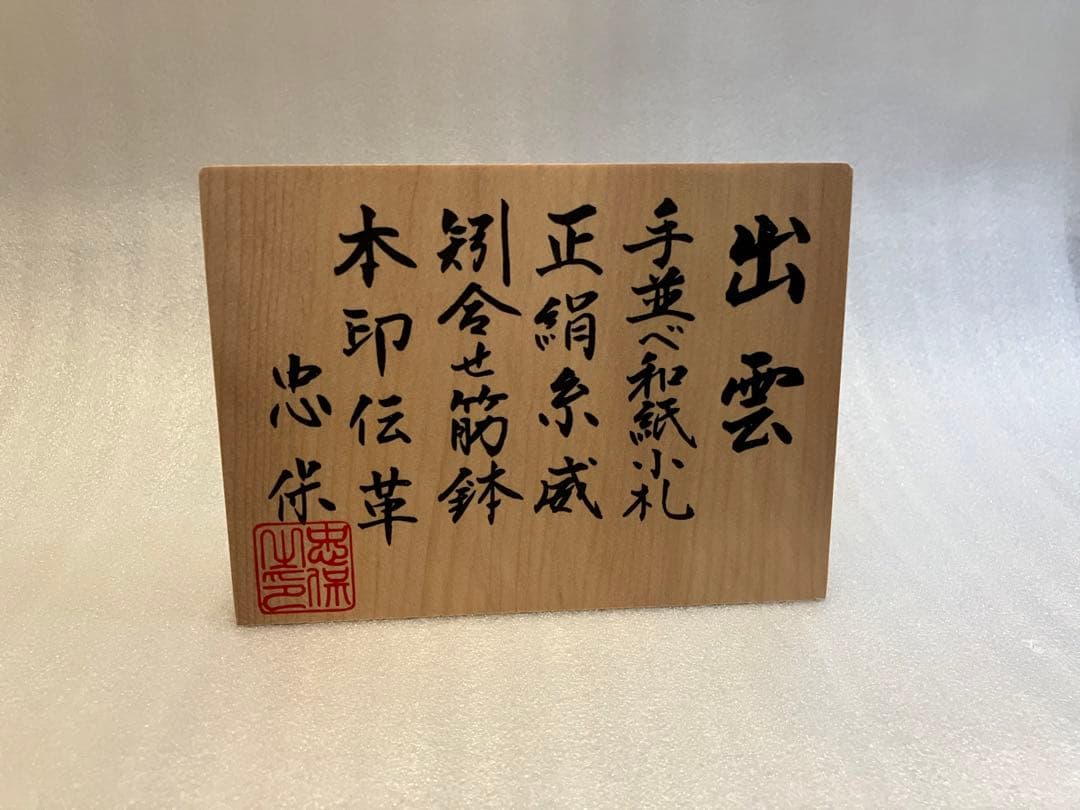 出雲
手並べ和紙小札
正絹糸威
矧合せ筋鉢
本印伝革
忠保
忠保之印